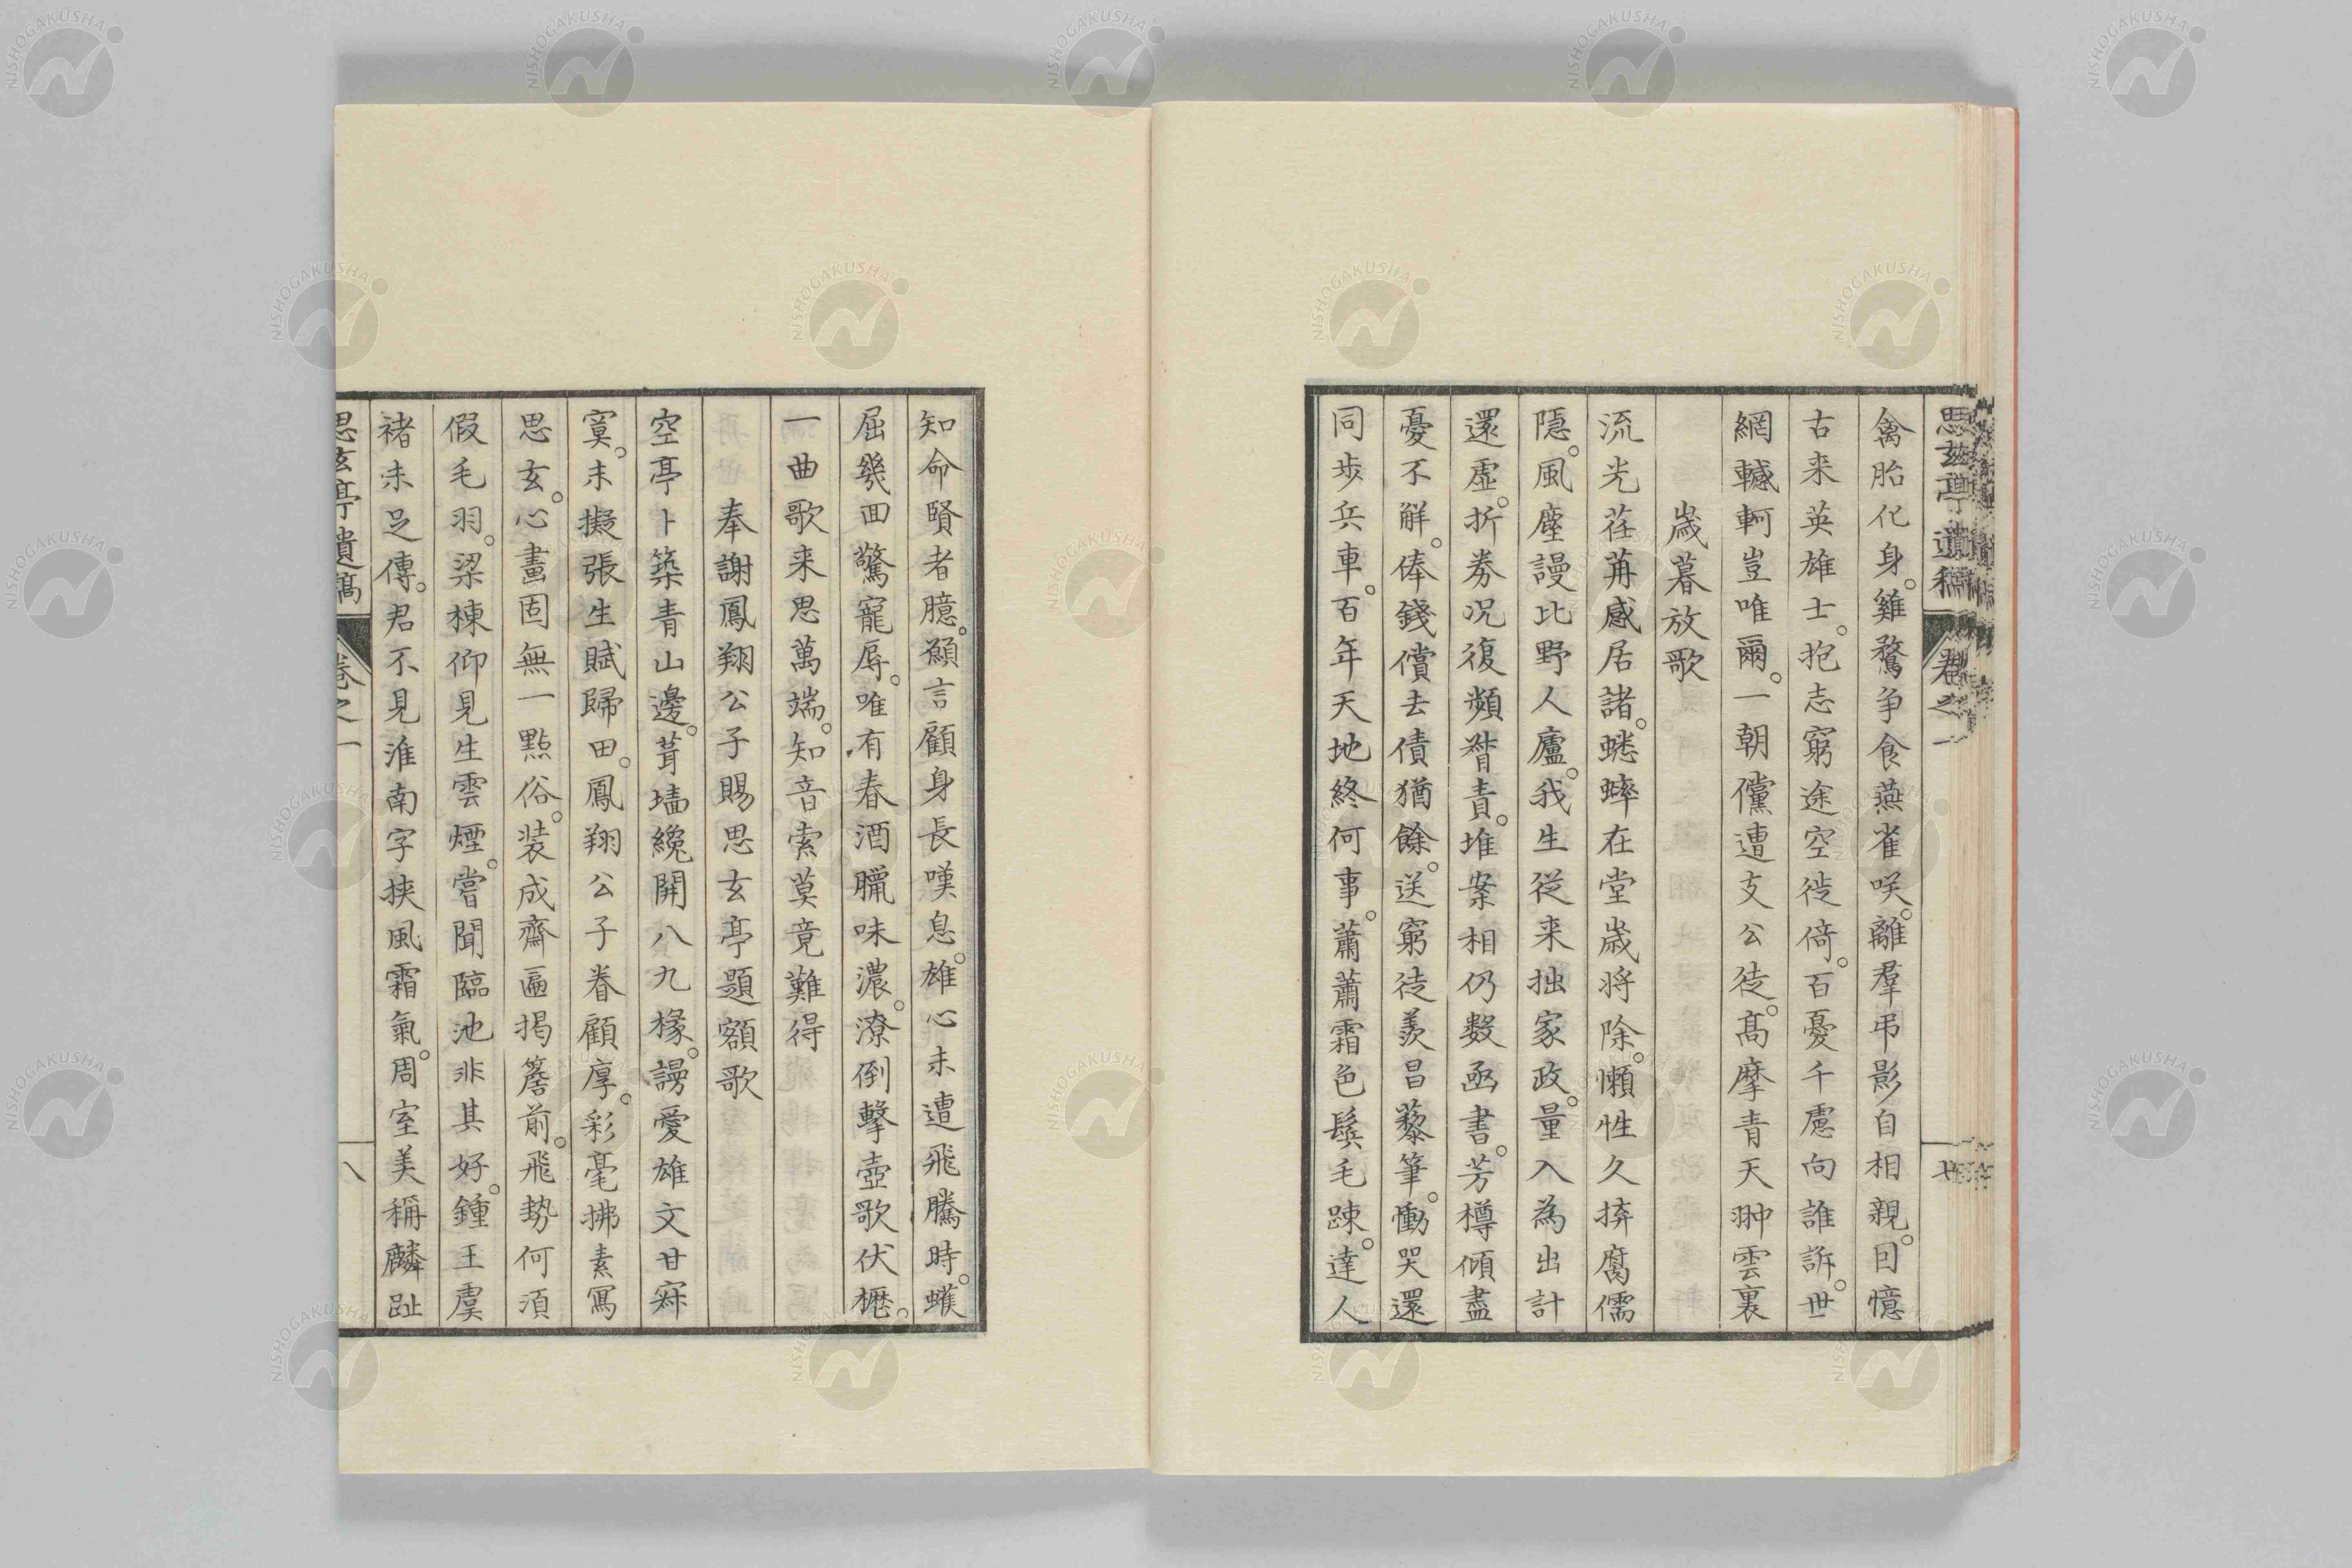 思玄亭遺稿 卷之一 七
禽胎化身。雞鶩争食燕雀咲。離羣弔影自相親。囙憶
古来英雄士。抱志窮途空徙倚。百憂千慮向誰訴。世
網轗軻豈唯爾。一朝儻遭支公徒。髙摩青天翀雲裏
歳暮放歌
流光荏苒感居諸。蟋蟀在堂歳将除。懶性久擠腐儒
隠。風塵謾比野人廬。我生従来拙家政。量入為出計
還虛。折券况復頻督責。堆案相仍数函書。芳樽傾盡
憂不解。俸錢償去債猶餘。送窮徒羨昌黎筆。慟哭還
同歩兵車。百年天地終何事。蕭蕭霜色鬂毛踈。達人
知命賢者臆。願言顧身長嘆息。雄心未遭飛騰時。蠖
屈幾囬驚寵辱。唯有春酒臘味濃。潦倒撃壺歌伏櫪。
一曲歌来思萬端。知音索莫竟難得
奉謝鳳翔公子賜思玄亭題額歌
空亭卜築青山邊。葺墻纔開八九椽。謾愛雄文甘寂
寞。未擬張生賦歸田。鳳翔公子眷顧厚。彩毫拂素冩
思玄。心畫固無一點俗。装成齋匾掲簷前。飛勢何須
假毛羽。梁棟仰見生雲煙。嘗聞臨池非其好。鍾王虞
禇未足傳。君不見淮南字挟風霜氣。周室美稱麟趾
思玄亭遺稿 卷之一 八
NISHOGAKUSHA